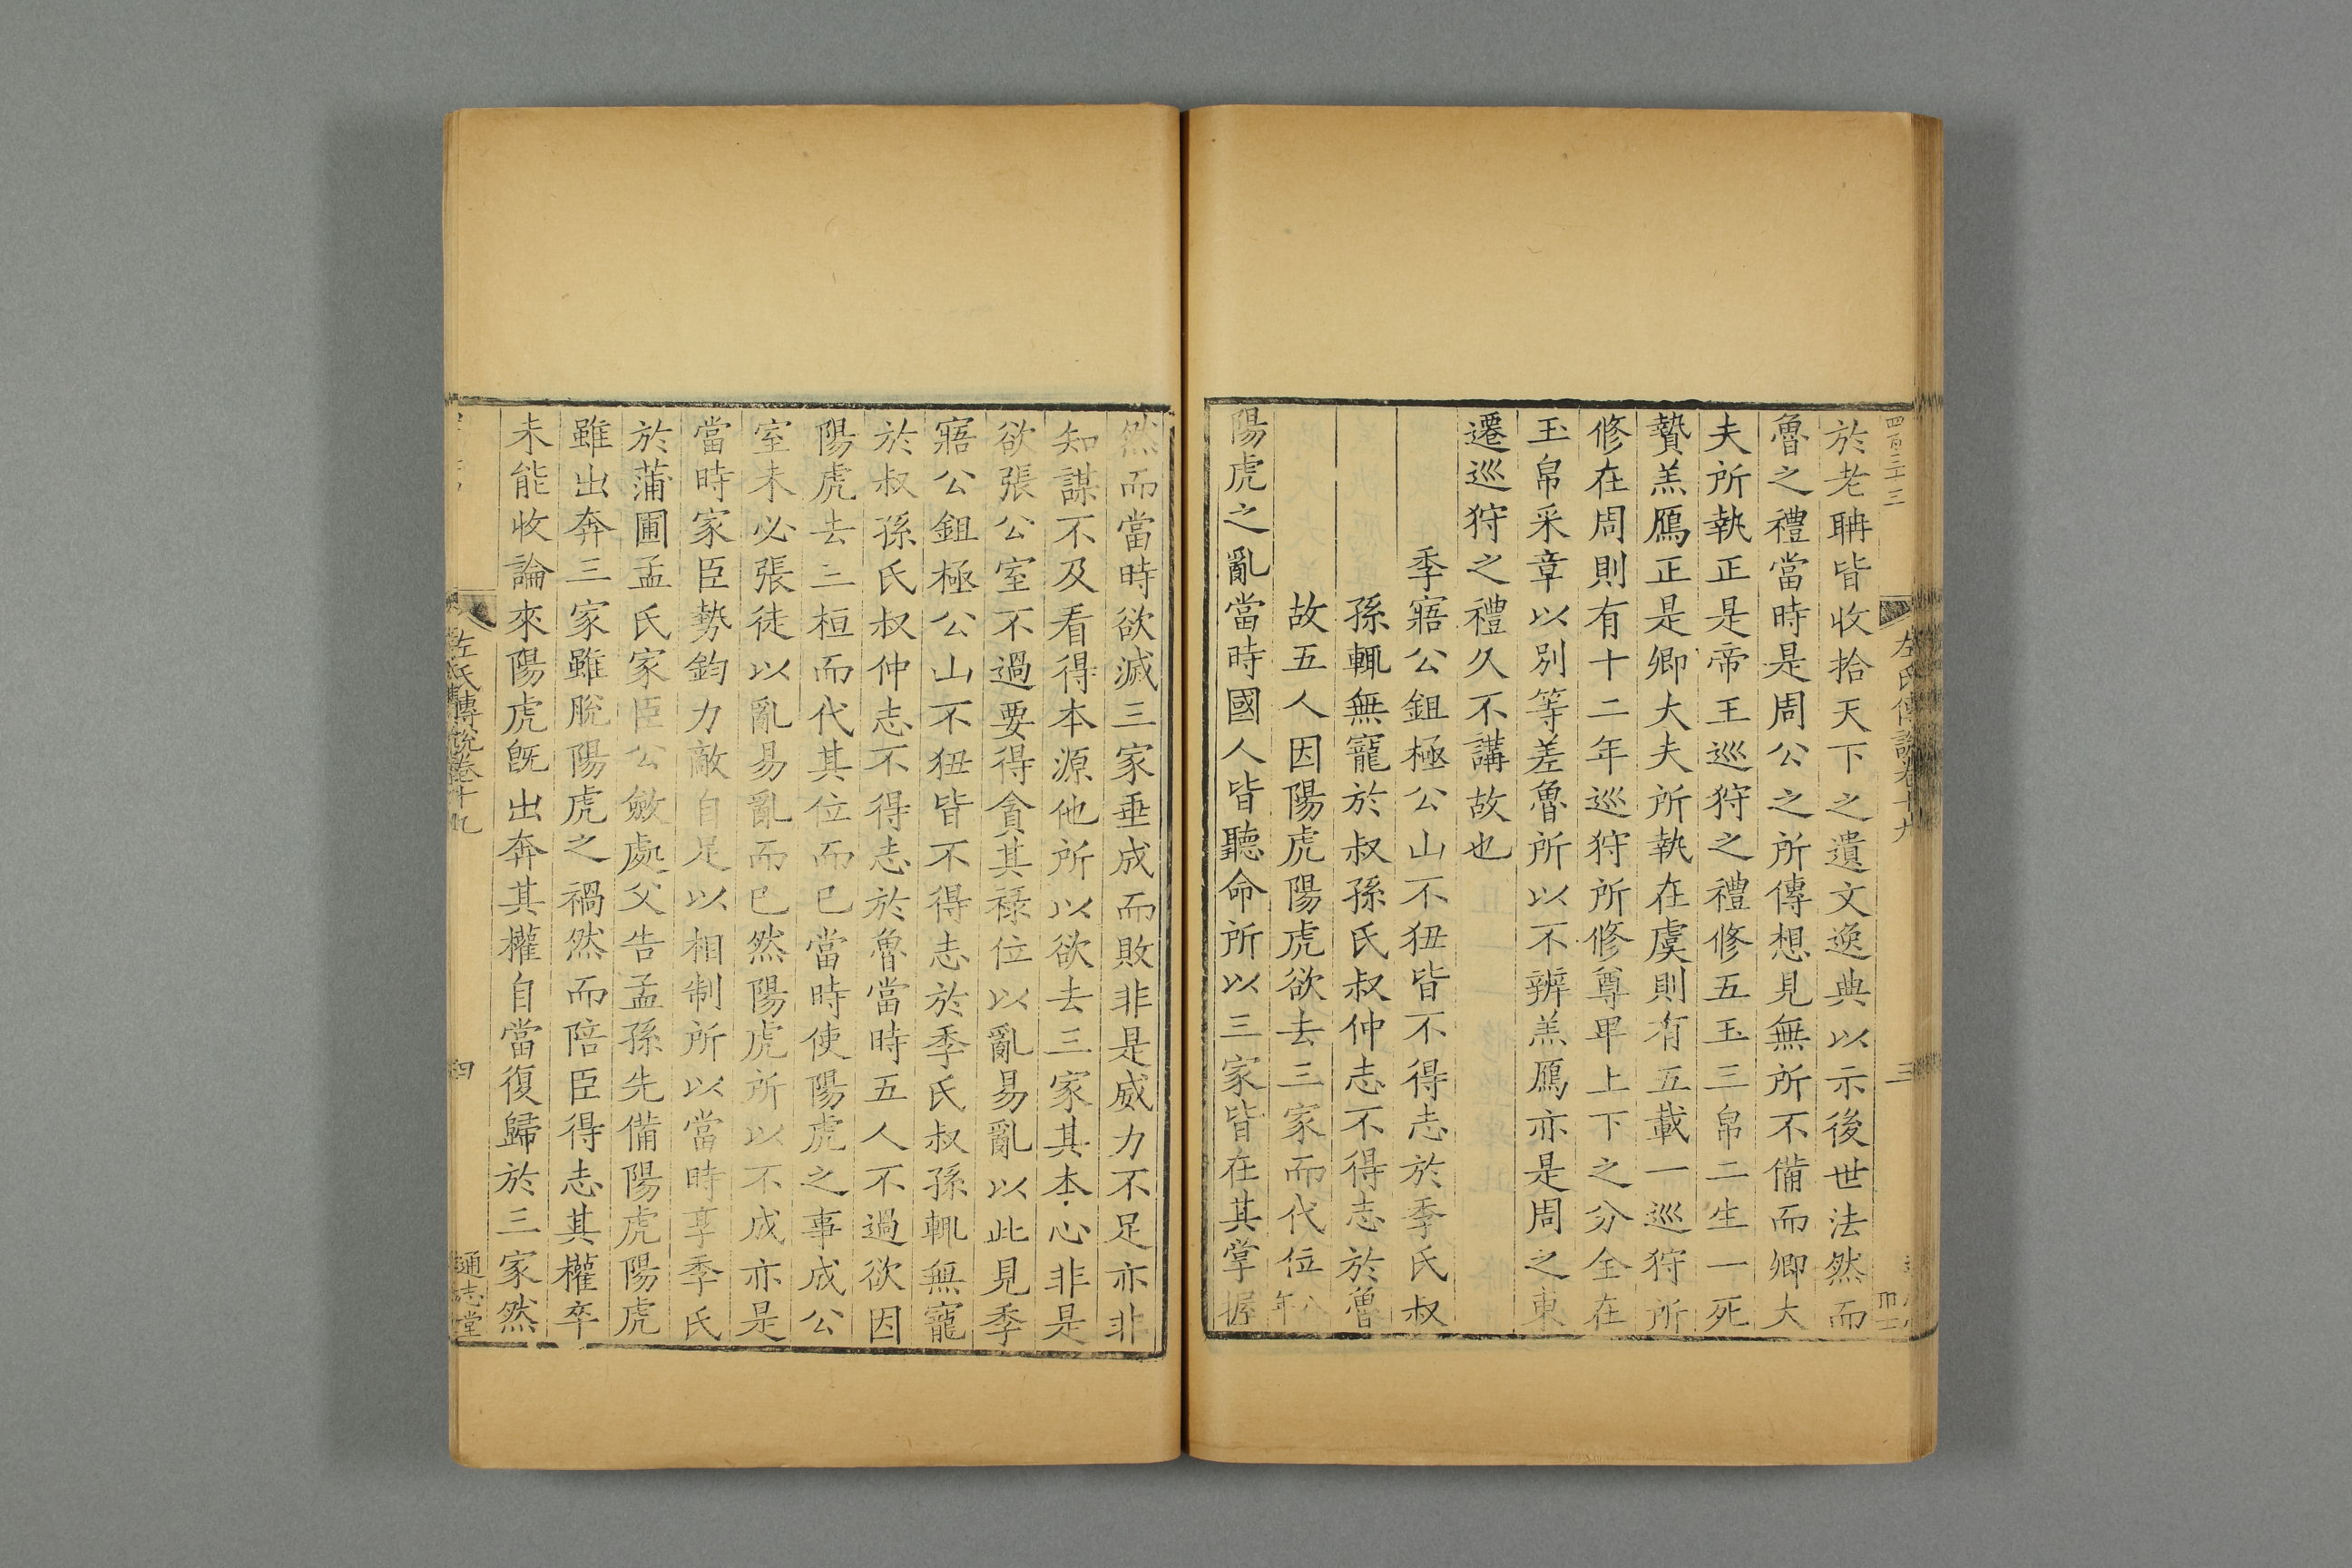 四百三十三
左氏傳說卷十九
三
於老聃皆收拾天下之遺文逸典以示後世法然而
魯之禮當時是周公之所傳想見無所不備而卿大
夫所執正是帝王巡狩之禮修五玉三帛二生一死
贄羔鴈正是卿大夫所執在虞則有五載一巡狩所
修在周則有十二年巡狩所修尊卑上下之分全在
玉帛采章以別等差魯所以不辨羔鴈亦是周之東
遷巡狩之禮久不講故也
季寤公鉏極公山不狃皆不得志於季氏叔
孫輒無寵於叔孫氏叔仲志不得志於魯
故五人因陽虎陽虎欲去三家而代位八年
陽虎之亂當時國人皆聽命所以三家皆在其掌握
然而當時欲滅三家垂成而敗非是威力不足亦非
知謀不及看得本源他所以欲去三家其本心非是
欲張公室不過要得貪其祿位以亂易亂以此見季
寤公鉏極公山不狃皆不得志於季氏叔孫輒無寵
於叔孫氏叔仲志不得志於魯當時五人不過欲因
陽虎去三桓而代其位而已當時使陽虎之事成公
室未必張徒以亂易亂而已然陽虎所以不成亦是
當時家臣勢鈞力敵自足以相制所以當時享季氏
於蒲圃孟氏家臣公斂處父告孟孫先備陽虎陽虎
雖出奔三家雖脫陽虎之禍然而陪臣得志其權卒
未能收論來陽虎旣出奔其權自當復歸於三家然
左氏傳說卷十九
四
通志堂